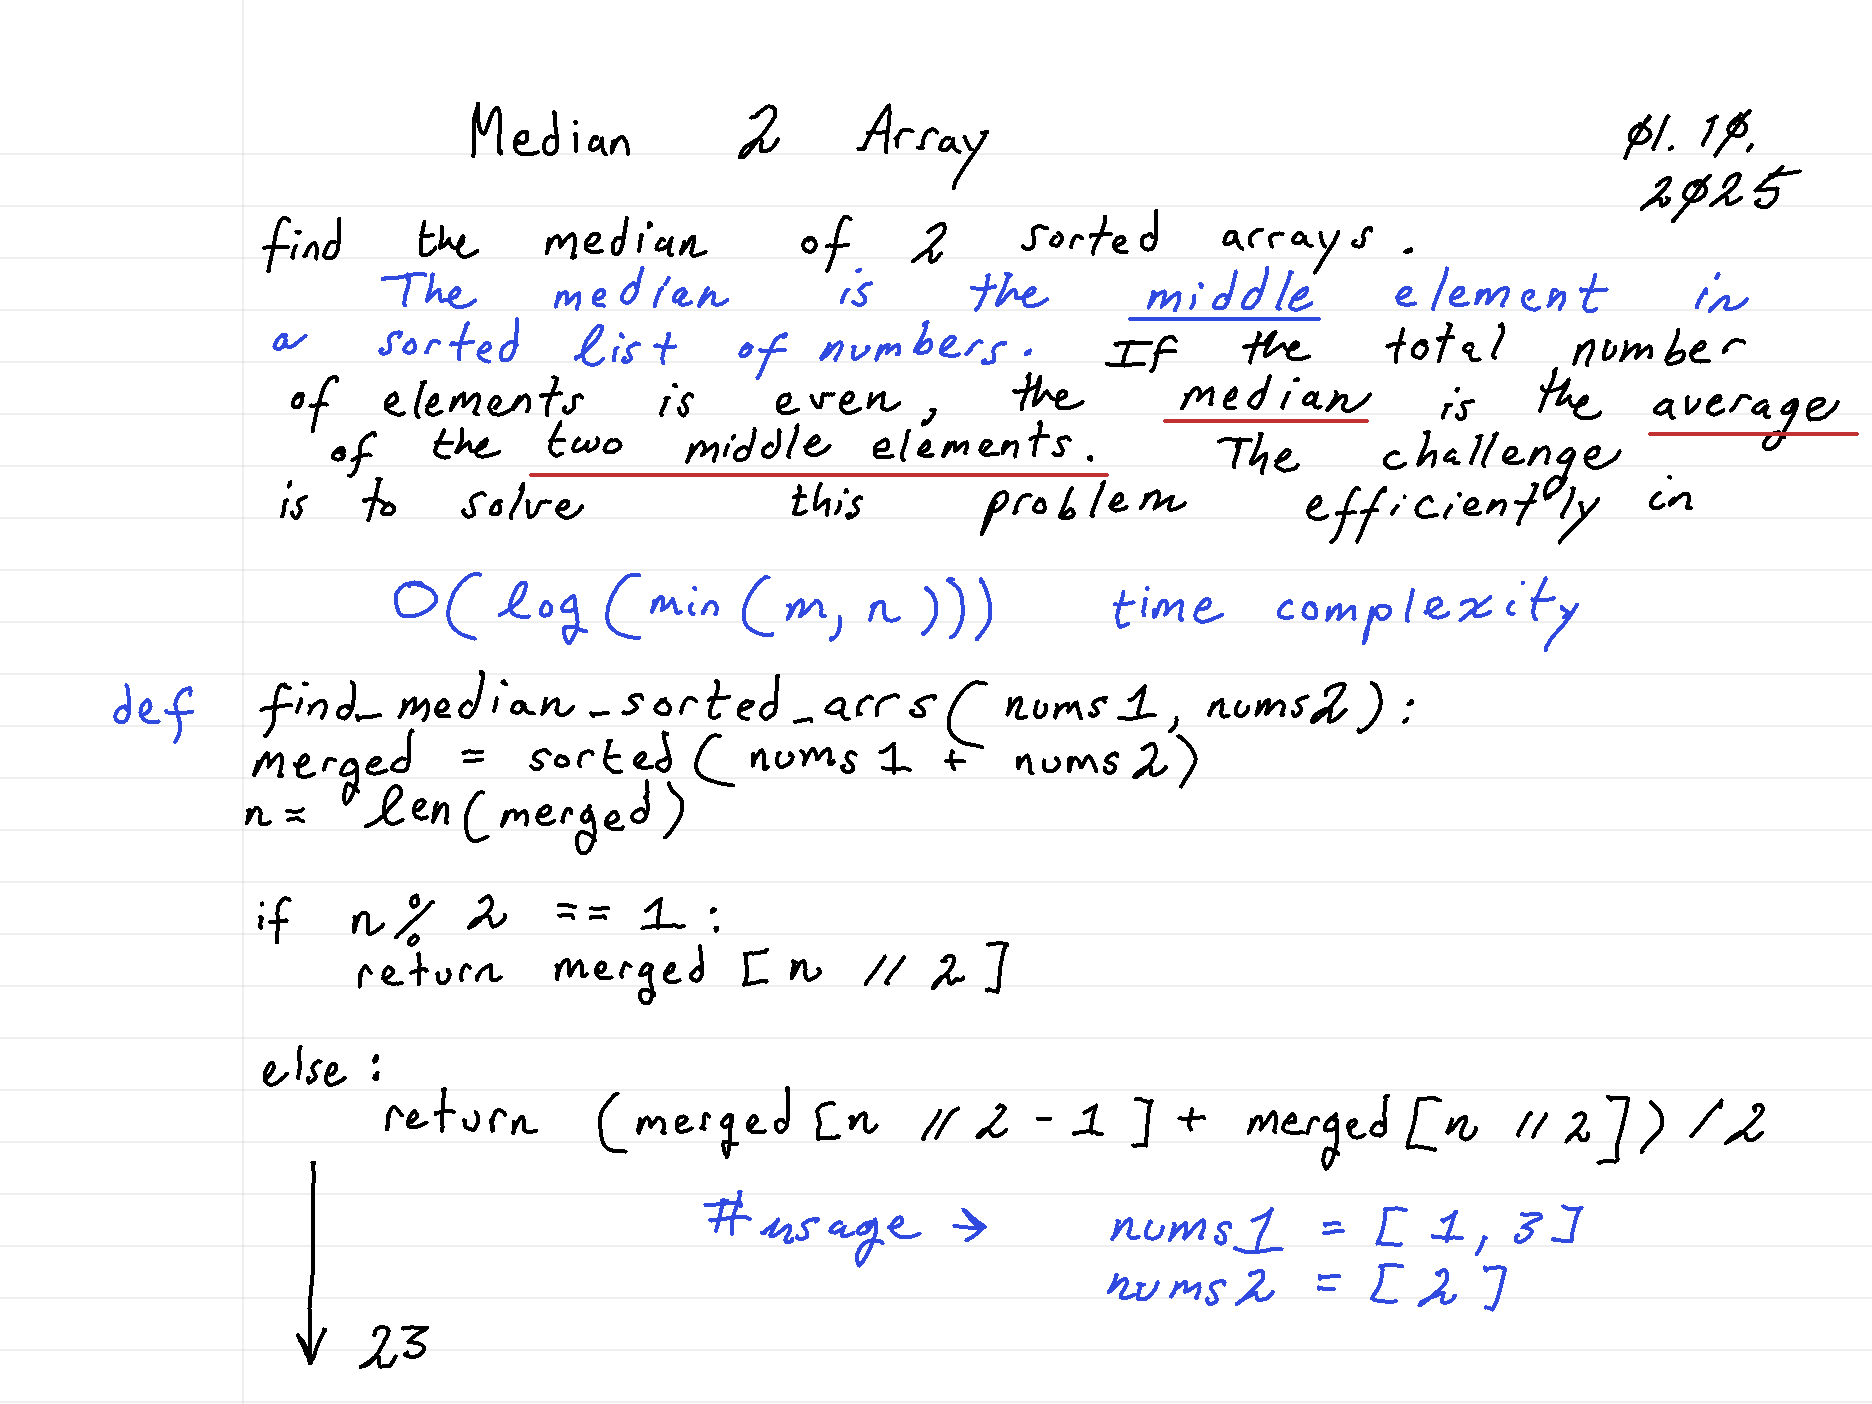 Median 2 Array
01.10.
2025
find the median of 2 sorted arrays.
The median is the middle element in
a sorted list of numbers. If the total number
of elements is even, the median is the average
of the two middle elements. The challenge
is to solve this problem efficiently in
O(log(min(m, n))) time complexity
def find_median_sorted_arrs(nums1, nums2):
merged = sorted(nums1 + nums2)
n = len(merged)
if n % 2 == 1:
return merged[n // 2]
else:
return (merged[n // 2 - 1] + merged[n // 2]) / 2
#usage → nums1 = [1, 3]
nums2 = [2]
23